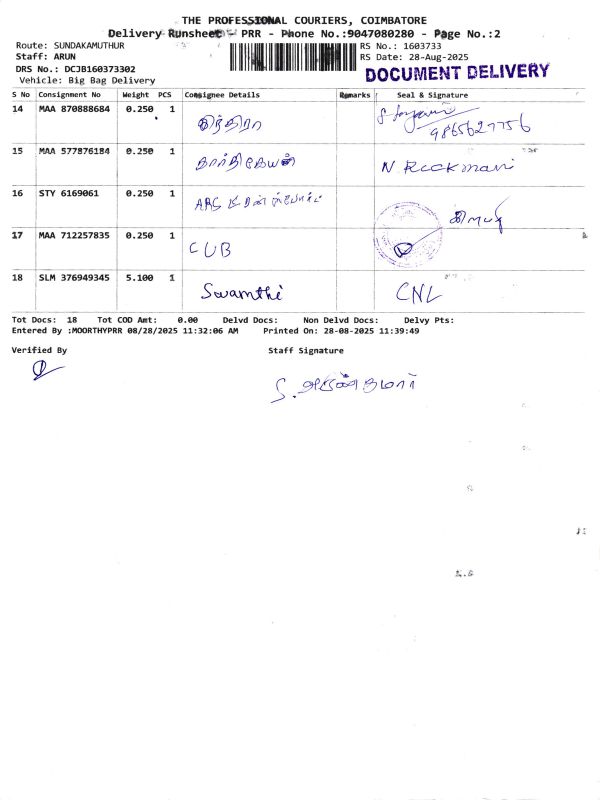 THE PROFESSIONAL COURIERS, COIMBATORE
Delivery Runsheet - PRR - Phone No.:9047080280 - Page No.:2
Route: SUNDAKAMUTHUR RS No.: 1603733
Staff: ARUN RS Date: 28-Aug-2025
DRS No.: DCJB160373302 DOCUMENT DELIVERY
Vehicle: Big Bag Delivery
S No Consignment No Weight PCS Consignee Details Remarks Seal & Signature
14 MAA 870888684 0.250 1 இந்திரா 9865627756
15 MAA 577876184 0.250 1 கார்த்திகேயன் N Rukmani
16 STY 6169061 0.250 1 ARS
17 MAA 712257835 0.250 1 CUB
18 SLM 376949345 5.100 1 Swamthi CNL
Tot Docs: 18 Tot COD Amt: 0.00 Delvd Docs: Non Delvd Docs: Delvy Pts:
Entered By :MOORTHYPRR 08/28/2025 11:32:06 AM Printed On: 28-08-2025 11:39:49
Verified By Staff Signature
S. அருண்குமார்